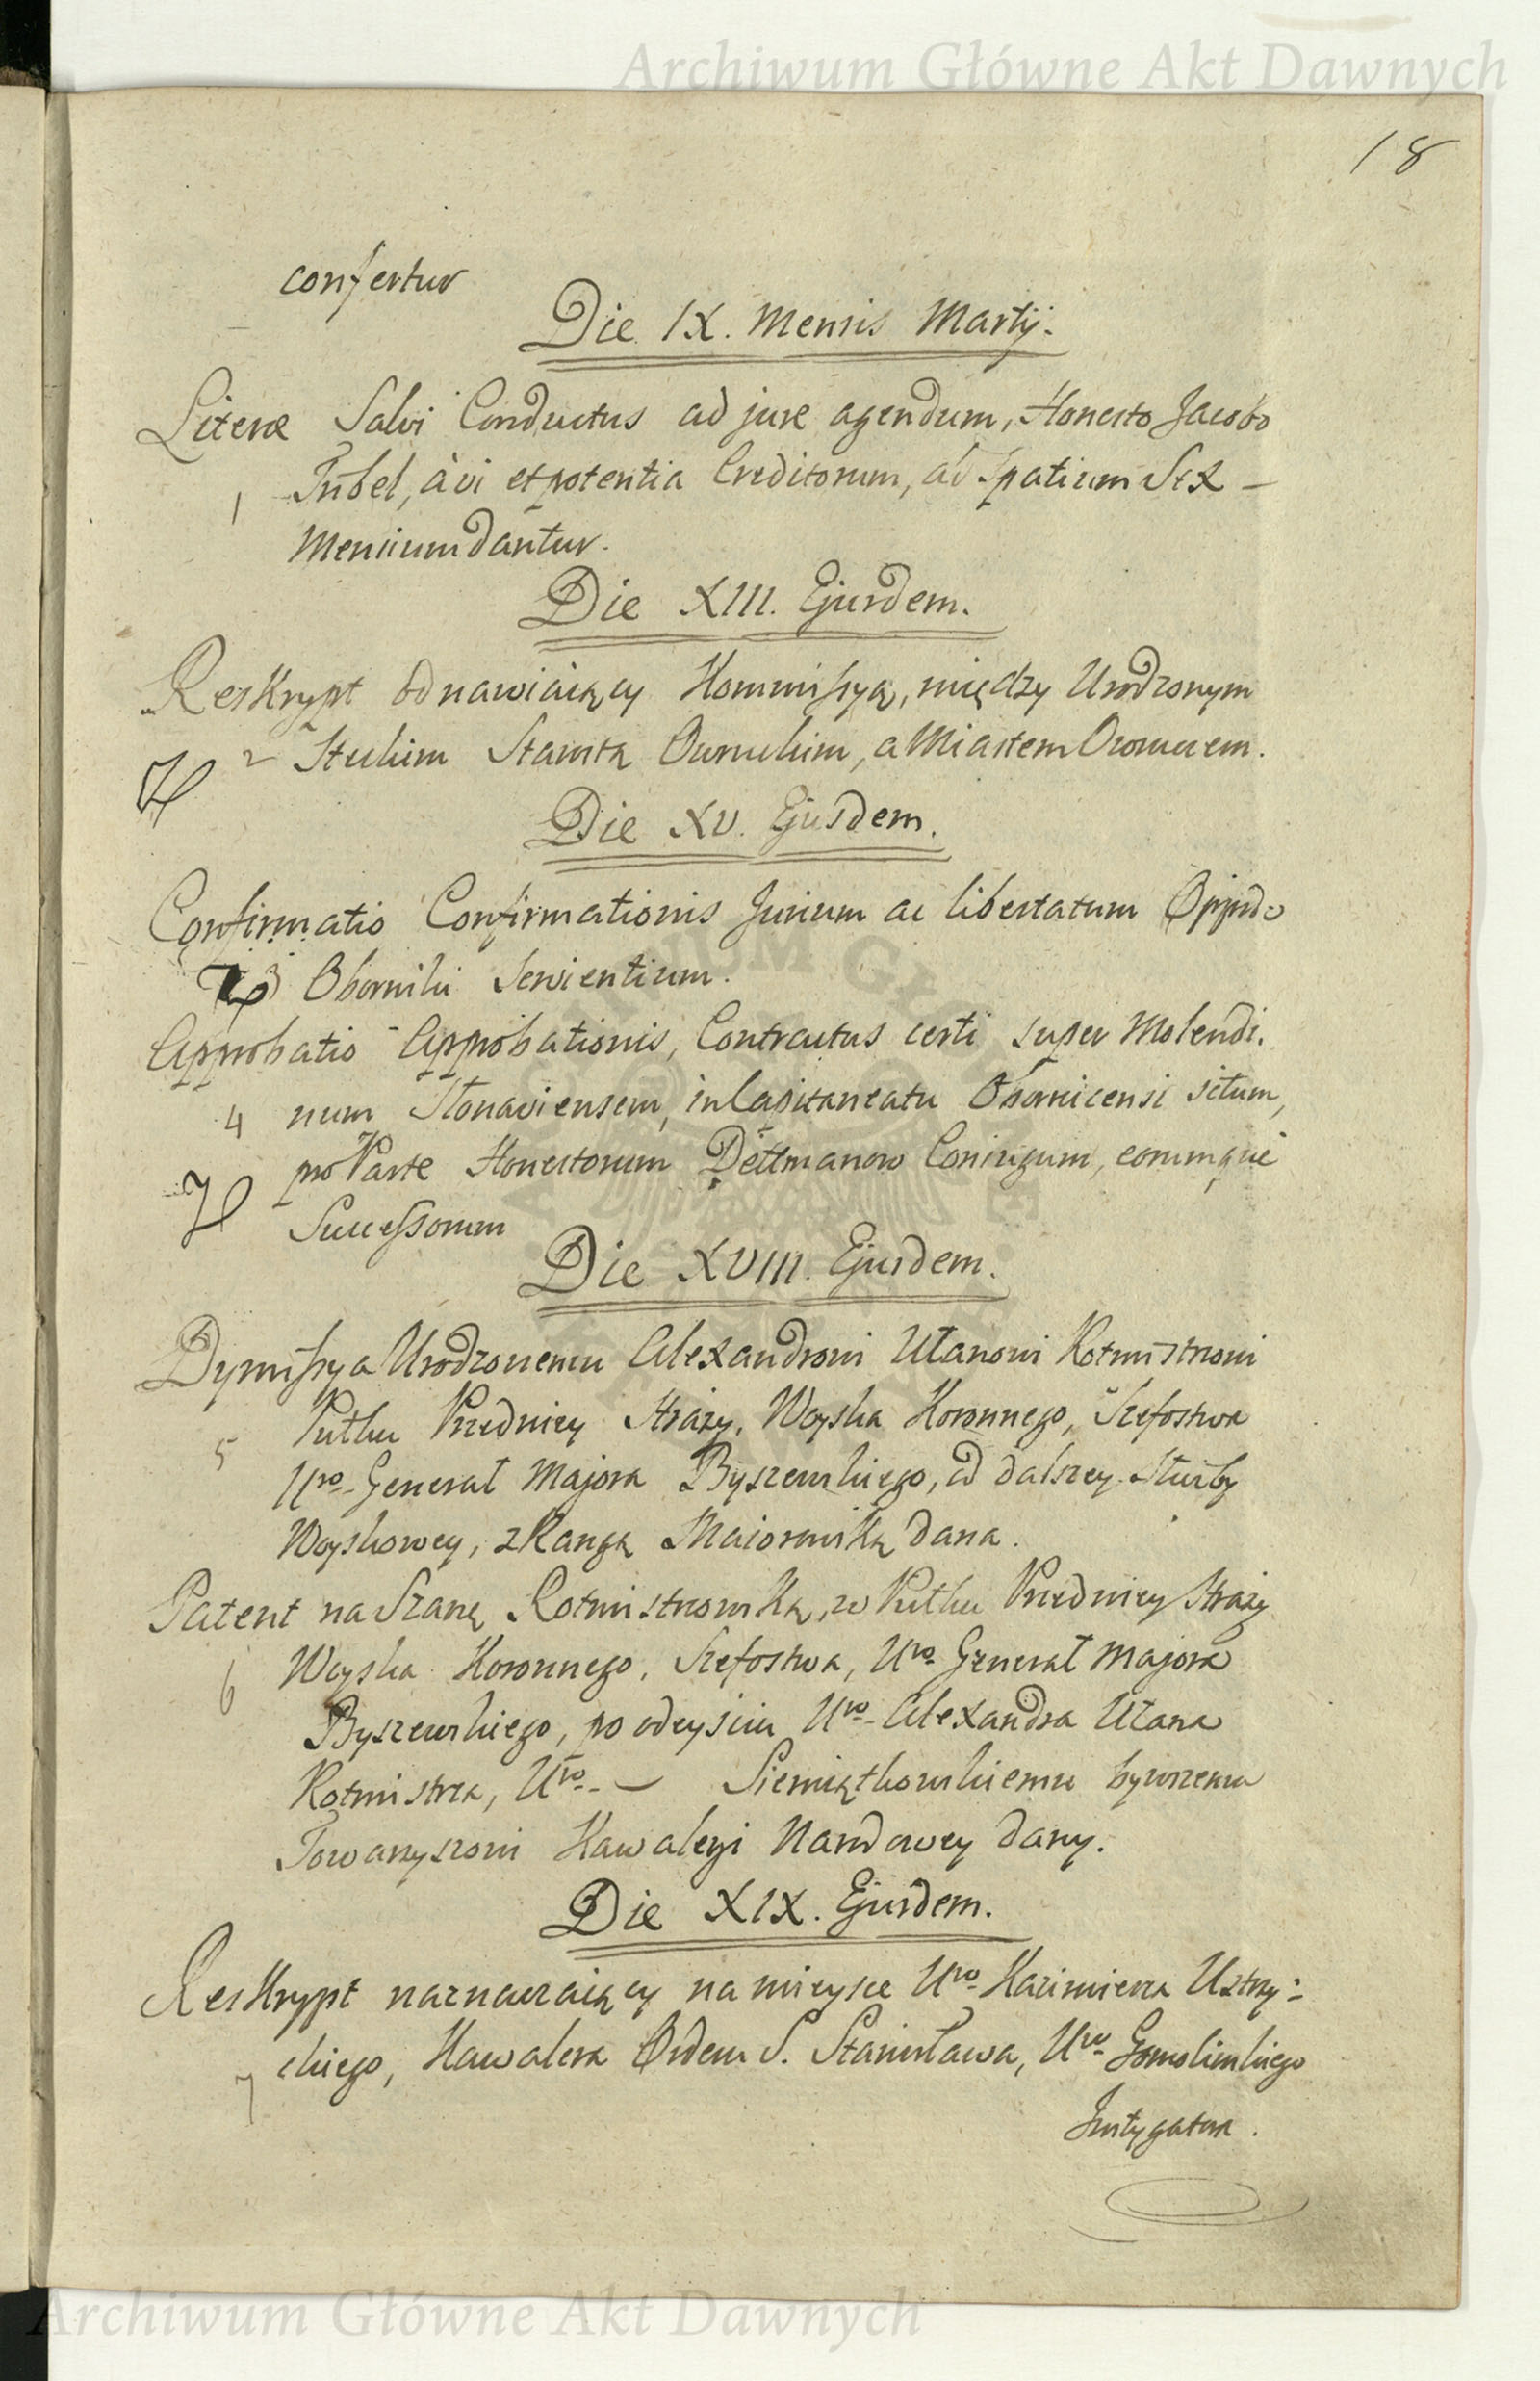 Archiwum Główne Akt Dawnych
18
confertur
Die IX. Mensis Martÿ.
Literæ Salvi Conductus ad jure agendum, Honesto Jacobo
1 Tubel, à vi et potentia Creditorum, ad Spatium Sex
Mensium dantur.
Die XIII. Ejusdem.
Reskrypt odnawiaiący Kommissyą, między Urodzonym
2 Starostą, a Miastem
Die XV. Ejusdem.
Confirmatio Confirmationis Jurium ac libertatum Oppido
3 Oborniki Servientium.
Approbatio Approbationis, Contractus certi super Molendi-
4 num Stonaviensem, in Capitaneatu Obornicensi situm,
pro Parte Honestorum Dettmanow Coniugum, eorumque
Successorum
Die XVIII. Ejusdem.
Dymissya Urodzonemu Alexandrowi Ułanowi Rotmistrzowi
5 Pułku Przedniey Straży, Woyska Koronnego, Szefostwa
Uro Generał Majora Byszewskiego, od dalszey Służby
Woyskowey, z Rangą Maiorowską dana.
Patent na Szarżę Rotmistrzowską, w Pułku Przedniey Straży
6 Woyska Koronnego, Szefostwa, Uro Generał Majora
Byszewskiego, po odeyściu Uro Alexandra Ułana
Rotmistrza, Uro — Siemiątkowskiemu bywszemu
Towarzyszowi Kawaleryi Narodowey dany.
Die XIX. Ejusdem.
Reskrypt naznaczaiący na mieysce Uro Kazimierza Ustrzy-
7 ckiego, Kawalera Orderu S. Stanisława, Uro Gomolinskiego
Instygatora.
Archiwum Główne Akt Dawnych